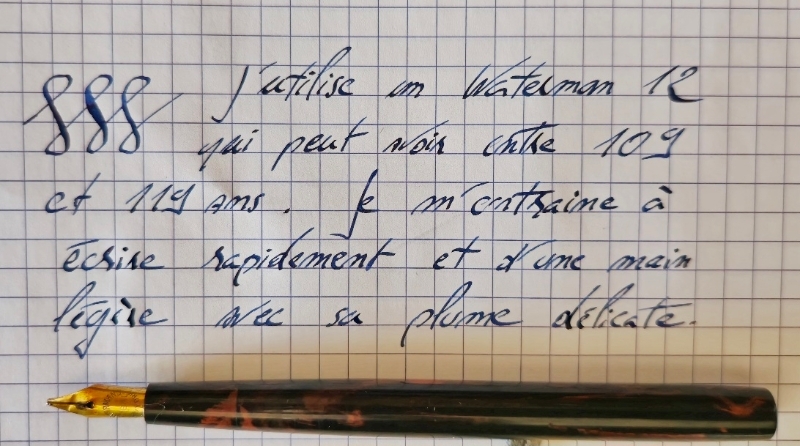 J'utilise un Waterman 12
qui peut avoir entre 109
et 119 ans. Je m'entraine à
écrire rapidement et d'une main
légère avec sa plume délicate.